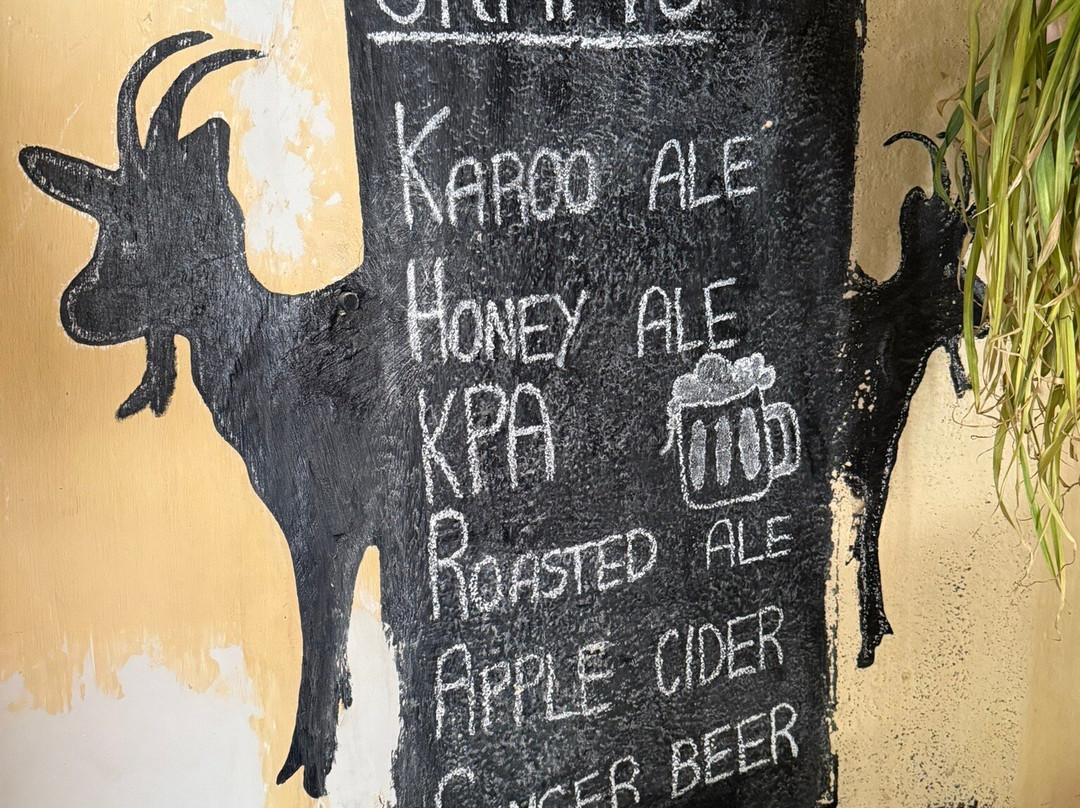 KAROO ALE
HONEY ALE
KPA
ROASTED ALE
APPLE CIDER
GINGER BEER